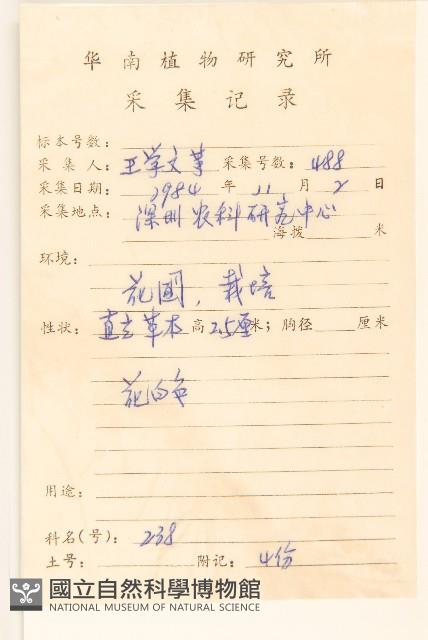 华南植物研究所
采集记录
标本号数：
采集人：王学文等 采集号数：488
采集日期：1984年11月2日
采集地点：深圳农科研究中心
海拨 米
环境：
花圃，栽培
性状：直立草本高25厘米；胸径 厘米
花白色
用途：
科名(号)：238
土号： 附记：4份
國立自然科學博物館
NATIONAL MUSEUM OF NATURAL SCIENCE